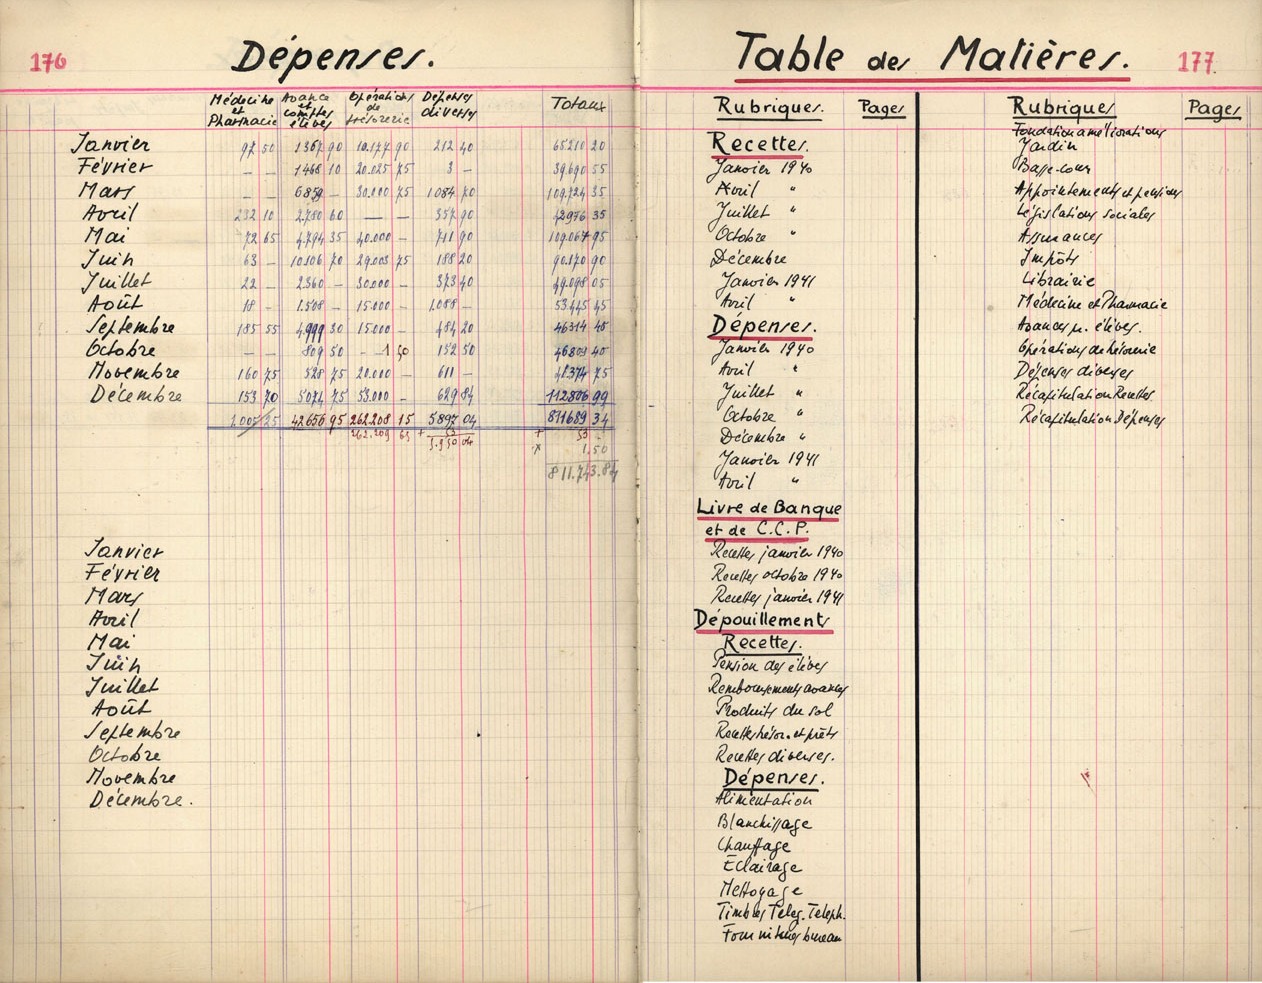 176
Dépenses.
Médecine et Pharmacie Avance et comptes élèves Opérations de trésorerie Dépenses diverses Totaux
Janvier 97 50 1367 90 10.177 90 212 40 65210 20
Février — — 1468 10 20.025 75 3 — 39.690 55
Mars — — 6859 — 30.000 75 1084 70 109.724 35
Avril 232 10 2.780 60 — — 357 90 42976 35
Mai 72 65 4.794 35 40.000 — 711 90 109.067 95
Juin 63 — 10.106 70 29.003 75 188 20 90.170 90
Juillet 22 — 2360 — 30.000 — 373 40 49.098 05
Août 18 — 1.508 — 15.000 — 1.088 — 53.445 45
Septembre 185 55 4.999 30 15.000 — 484 20 46314 45
Octobre — — 809 50 — 1 50 152 50 46809 40
Novembre 160 75 528 75 20.000 — 611 — 75
Décembre 153 70 5074 75 53.000 — 629 84 112806 99
1005 25 42656 95 262.208 15 5897 04 811689 34
262.209 65 + 53 + 53
5.950 04 x 1.50
811.743.84
Janvier
Février
Mars
Avril
Mai
Juin
Juillet
Août
Septembre
Octobre
Novembre
Décembre.
Table des Matières.
177
Rubriques. Pages
Recettes.
Janvier 1940
Avril "
Juillet "
Octobre "
Décembre
Janvier 1941
Avril "
Dépenses.
Janvier 1940
Avril "
Juillet "
Octobre "
Décembre "
Janvier 1941
Avril "
Livre de Banque
et de C.C.P.
Recettes janvier 1940
Recettes octobre 1940
Recettes janvier 1941
Dépouillements
Recettes.
Pension des élèves
Remboursements avances
Produits du sol
Recettes trésor. et prêts
Recettes diverses.
Dépenses.
Alimentation
Blanchissage
Chauffage
Eclairage
Nettoyage
Timbres Teleg. Teleph.
Fournitures bureau
Rubriques Pages
Fondation améliorations
Jardin
Basse-cour
Appointements et pensions
Législations sociales
Assurances
Impôts
Librairie
Médecine et Pharmacie
Avances p. élèves.
Opérations de trésorerie
Dépenses diverses
Récapitulation Recettes
Récapitulation Dépenses